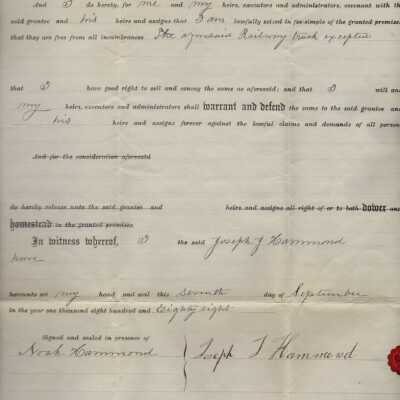 And I do hereby, for me and my heirs, executors and administrators, covenant with the
said grantee and his heirs and assigns that I am lawfully seized in fee-simple of the granted premises
that they are free from all incumbrances The aforesaid Railway track excepted
that I have good right to sell and convey the same as aforesaid; and that I will and
my heirs, executors and administrators shall warrant and defend the same to the said grantee and
his heirs and assigns forever against the lawful claims and demands of all person
And for the consideration aforesaid
do hereby release unto the said grantee and heirs and assigns all right of or to both dower and
homestead in the granted premises
In witness whereof, I the said Joseph J Hammond
have
hereunto set my hand and seal this Seventh day of September
in the year one thousand eight hundred and Eighty eight
Signed and sealed in presence of
Noah Hammond
Joseph J Hammond